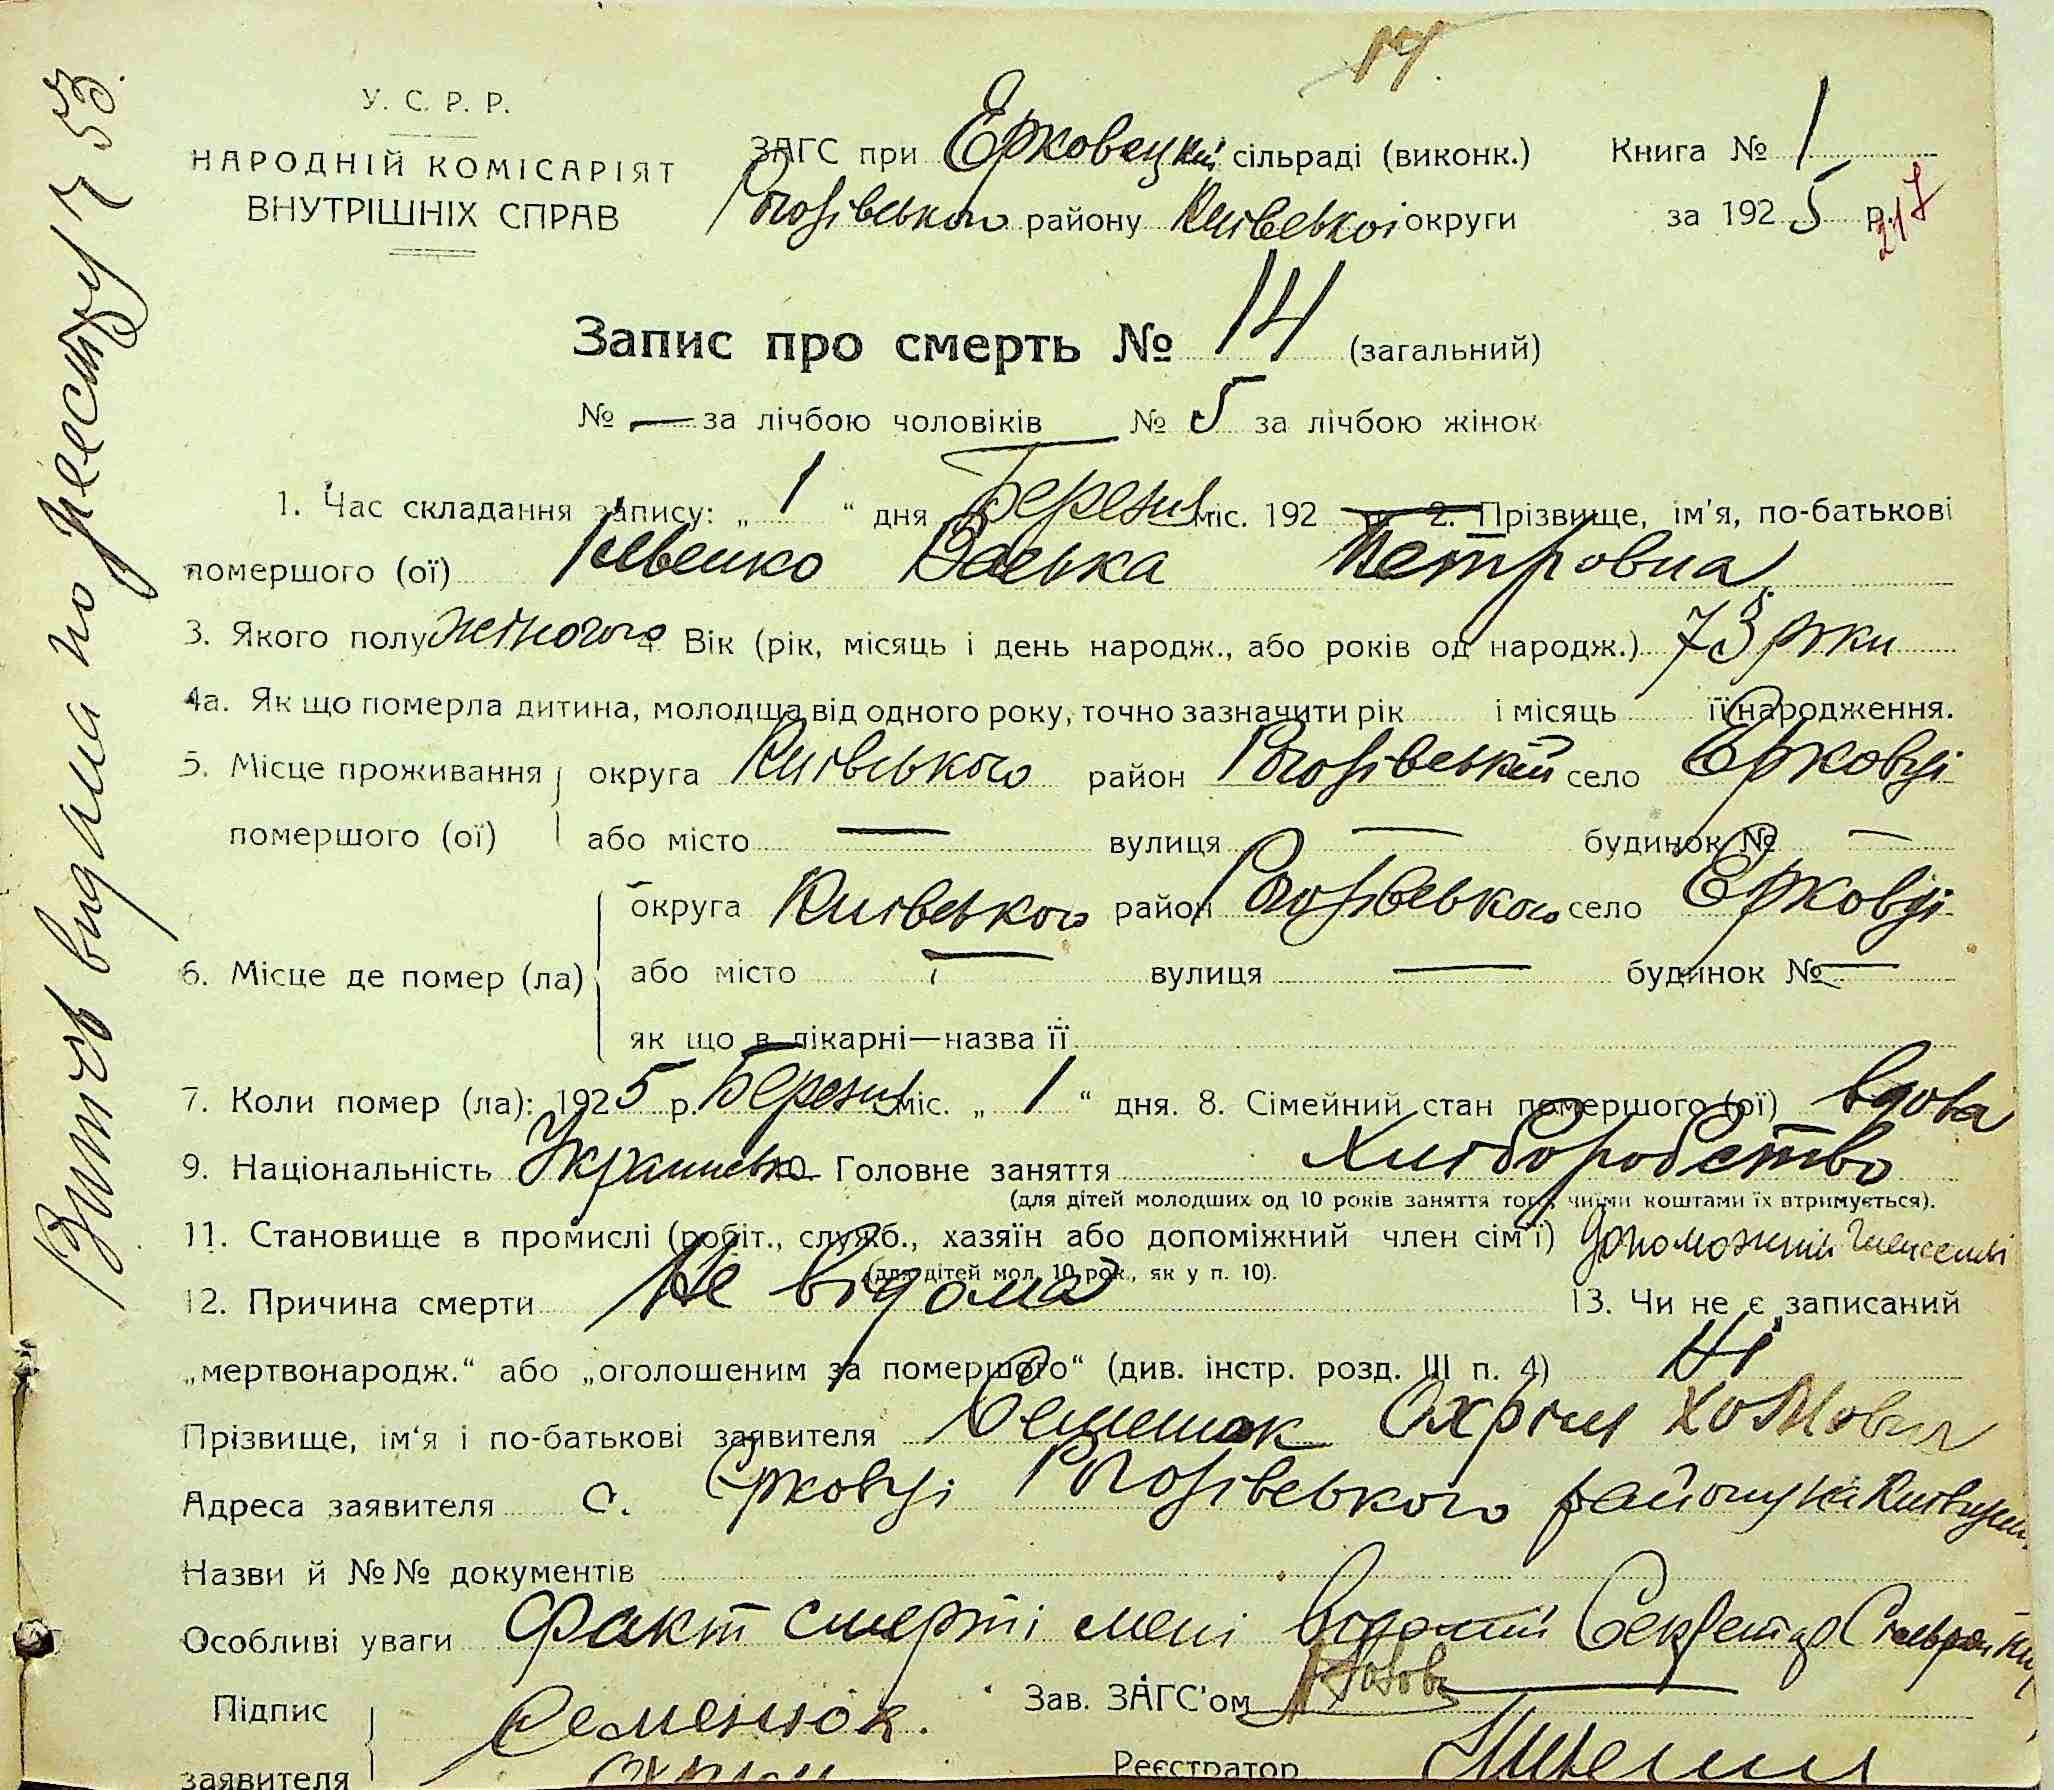 14.
У. С. Р. Р.
НАРОДНІЙ КОМІСАРІЯТ
ВНУТРІШНІХ СПРАВ
ЗАГС при Єрковецкий сільраді (виконк.)
Рогозівського району Київської округи
Книга № 1
за 1925 р.
217
Запис про смерть № 14 (загальний)
№ — за лічбою чоловіків № 5 за лічбою жінок
1. Час складання запису: „1“ дня Березня міс. 192 2. Прізвище, ім'я, по-батькові
помершого (ої) Васька Петровна
3. Якого полу жіночого 4. Вік (рік, місяць і день народж., або років од народж.) 73 роки
4а. Як що померла дитина, молодща від одного року, точно зазначити рік і місяць її народження.
5. Місце проживання округа Київського район Рогозівський село Єрковці
помершого (ої) або місто — вулиця — будинок № —
округа Київського район Рогозівського село Єрковці
6. Місце де помер (ла) або місто — вулиця — будинок № —
як що в лікарні—назва її
7. Коли помер (ла): 1925 р. Березня міс. „1“ дня. 8. Сімейний стан помершого (ої) вдова
9. Національність Головне заняття Хліборобство
(для дітей молодших од 10 років заняття того, чиїми коштами їх втримується).
11. Становище в промислі (робіт., служб., хазяїн або допоміжний член сім'ї) допоможний член семьї
(для дітей мол. 10 рок., як у п. 10).
12. Причина смерти Не відома 13. Чи не є записаний
„мертвонародж.“ або „оголошеним за помершого“ (див. інстр. розд. III п. 4) Ні
Прізвище, ім'я і по-батькові заявителя Семенюк Охрім Хомович
Адреса заявителя с. Єрковці Рогозівського району на Київщині
Назви й №№ документів
Особливі уваги Факт смерті мені відомий Секретар Сільради
Підпис Семенюк. Зав. ЗАГС'ом
заявителя Охрім Реєстратор
Витяг видана по реестру № 53.